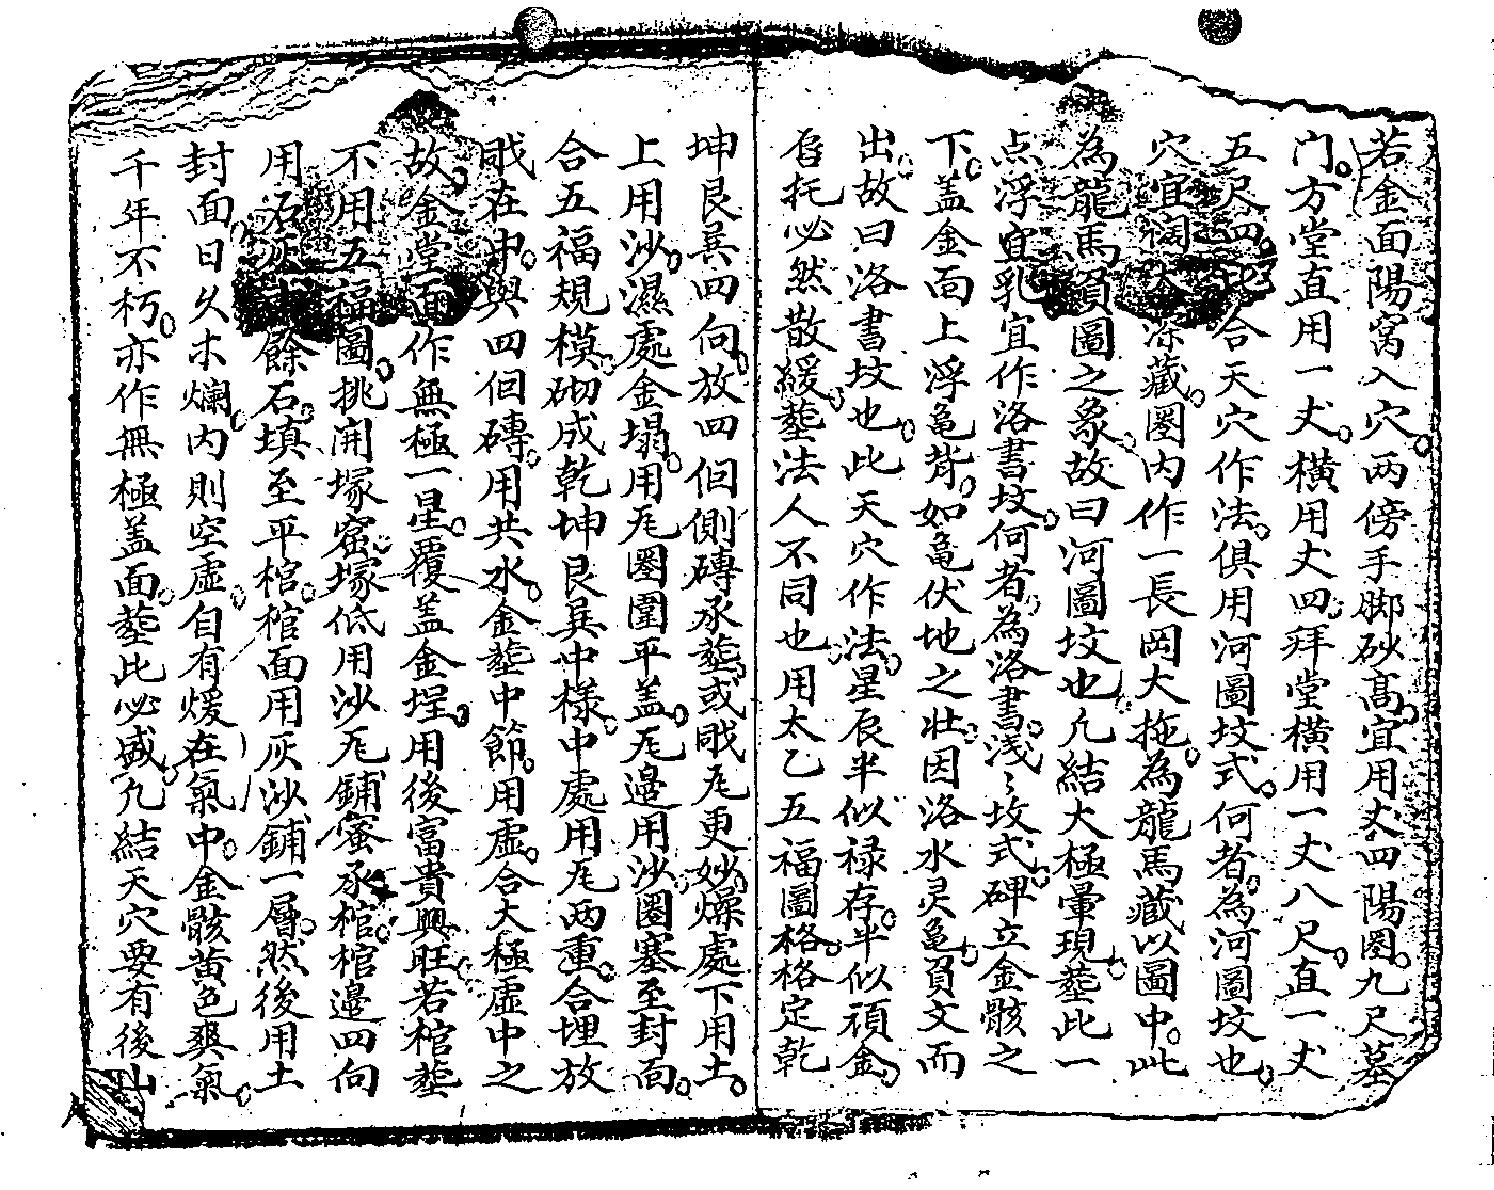 若金面陽窩入穴两傍手脚砂髙宜用丈四陽圏九尺墓
门方堂直用一丈横用丈四拜堂横用一丈八尺直一丈
五尺四 合天穴作法俱用河圖坟式何者為河圖坟也
穴宜 深藏圏内作一長岡大拖為龍馬藏以圖中此
為龍馬負圖之象故曰河圖坟也凢結大極暈現塟此一
点浮宜乳宜作洛書坟何者為洛書浅〻坟式碑立金骸之
下盖金面上浮亀背如亀伏地之壮因洛水灵亀負文而
出故曰洛書坟也此天穴作法星辰半似禄存半似頑金
唇托必然散緩塟法人不同也用太乙五福圖格格定乾
坤艮巽四向放四佪側磚承塟或戙瓦更妙燥處下用土
上用沙濕處金塌用瓦圏圍平盖瓦邉用沙圏塞至封面
合五福規模砌成乾坤艮巽中様中處用瓦两重合埋放
戙在中與四佪磚用共水金塟中節用虚合大極虚中之
故金堂面作無極一星覆盖金埕用後富貴興旺若棺塟
不用五福圖挑開塚窟塚低用沙瓦鋪蜜承棺棺邉四向
用石灰 餘石填至平棺棺面用灰沙鋪一層然後用土
封面日久木爛内則空虚自有煖在氣中金骸黄色爽氣
千年不朽亦作無極盖面塟此必盛凢結天穴要有後山